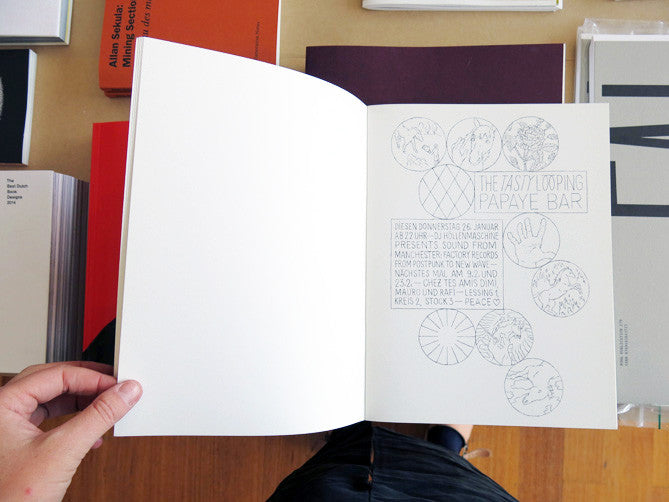 Allan Sekula:
Mining Section
The
Best Dutch
Book
Designs
2014
THE TASTY LOOPING
PAPAYE BAR
DIESEN DONNERSTAG 26. JANUAR
AB 22 UHR – DJ HÖLLENMASCHINE
PRESENTS SOUND FROM
MANCHESTER: FACTORY RECORDS
FROM POSTPUNK TO NEW WAVE –
NÄCHSTES MAL AM 9.2. UND
23.2. – CHEZ TES AMIS DIMI,
MAURO UND RAFI – LESSING 1,
KREIS 2, STOCK 3 – PEACE ♡